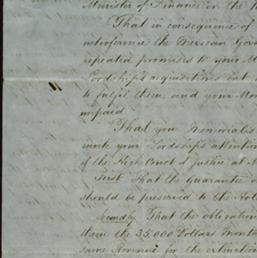 Minister of Finance on the
That in consequence of
interference the Mexican Gov
repeated promises to your M
Lordship's acquisitions but
to fulfil them, and your Mem
unpaid
That your Memorialis
invite your Lordship's attention
of the High Court of Justice at M
First That the Guarantee
should be preserved to the
Secondly That the obligation
them the 35,000 Dollars Month
same Revenue for the extinction